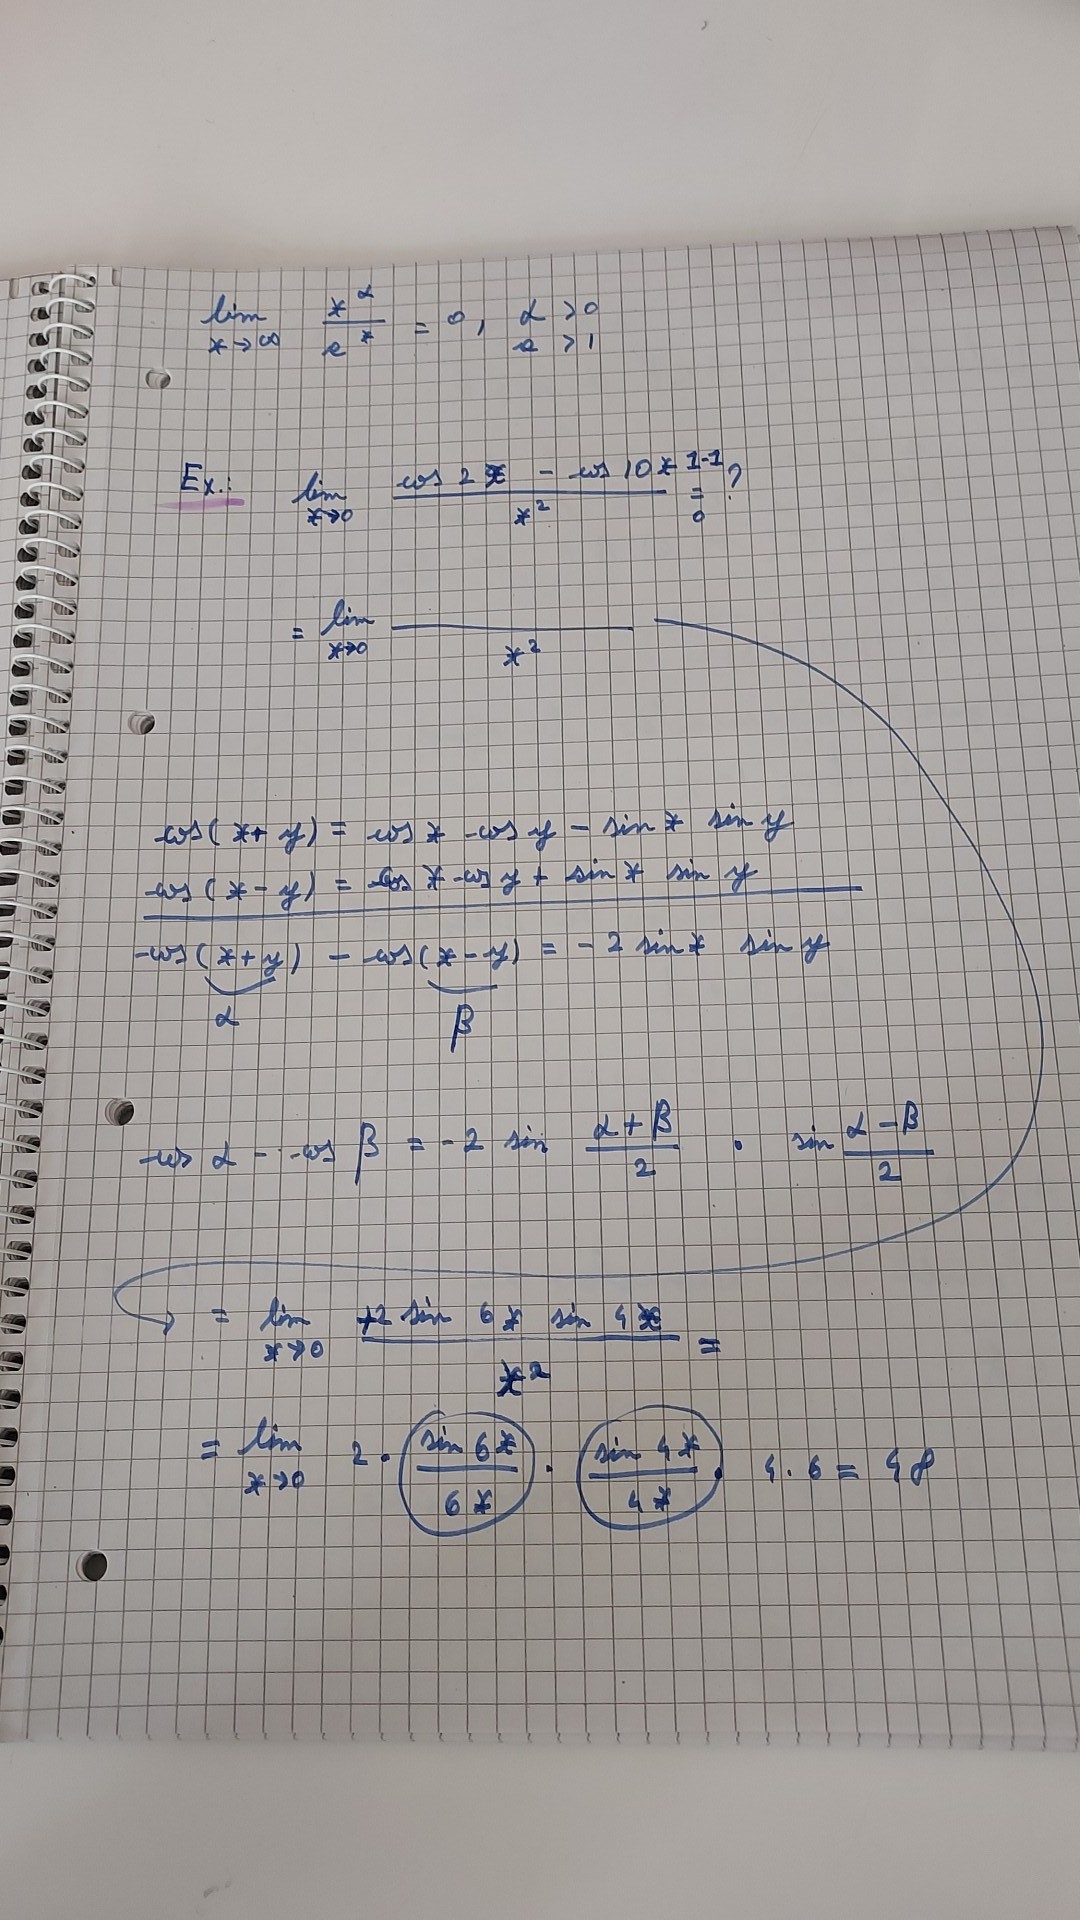 lim x→∞ x^α / a^x = 0, α > 0
a > 1
Ex.: lim x→0 (cos 2x - cos 10x) / x² = (1-1) / 0 ?
= lim x→0 ______ / x²
cos(x+y) = cos x cos y - sin x sin y
cos(x-y) = cos x cos y + sin x sin y
cos(x+y) - cos(x-y) = -2 sin x sin y
α β
cos α - cos β = -2 sin (α+β)/2 · sin (α-β)/2
= lim x→0 (+2 sin 6x sin 4x) / x² =
= lim x→0 2 · (sin 6x)/(6x) · (sin 4x)/(4x) · 4 · 6 = 48